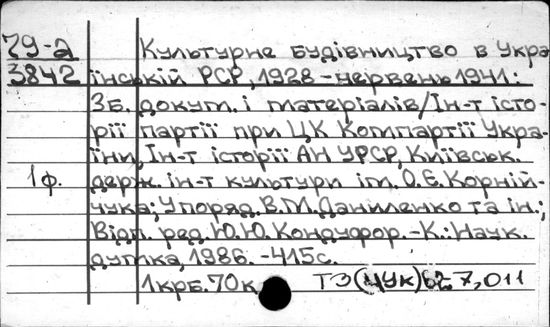 79-2 Культурне будівництво в Укра
3842 їнській РСР, 1928 - червень 1941:
Зб. докум. і матеріалів/Ін-т істо
рії партії при ЦК Компартії Укра
їни, Ін-т історії АН УРСР, Київськ.
1ф. держ. ін-т культури ім. О.Є. Корній-
чука; Упоряд. В.М. Даниленко та ін.;
Відп. ред. Ю.Ю. Кондуфор. -К.: Наук.
думка, 1986. -415с.
1крб. 70к. ТЗ(4Ук)627,011